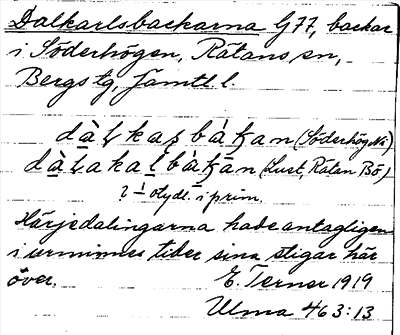 Dalkarlsbackarna G77, backar
i Söderhögen, Rätans sn,
Bergs tg, Jämtl l.
dàḷkaṣbàkan (Söderhög Nä)
dàḷakaḷbàkan (Lust, Rätan Bö)
? ⊥ otydl. i prim.
Härjedalingarna hade antagligen
i urminnes tider sina stigar här
över. E. Terner 1919
Ulma 463:13